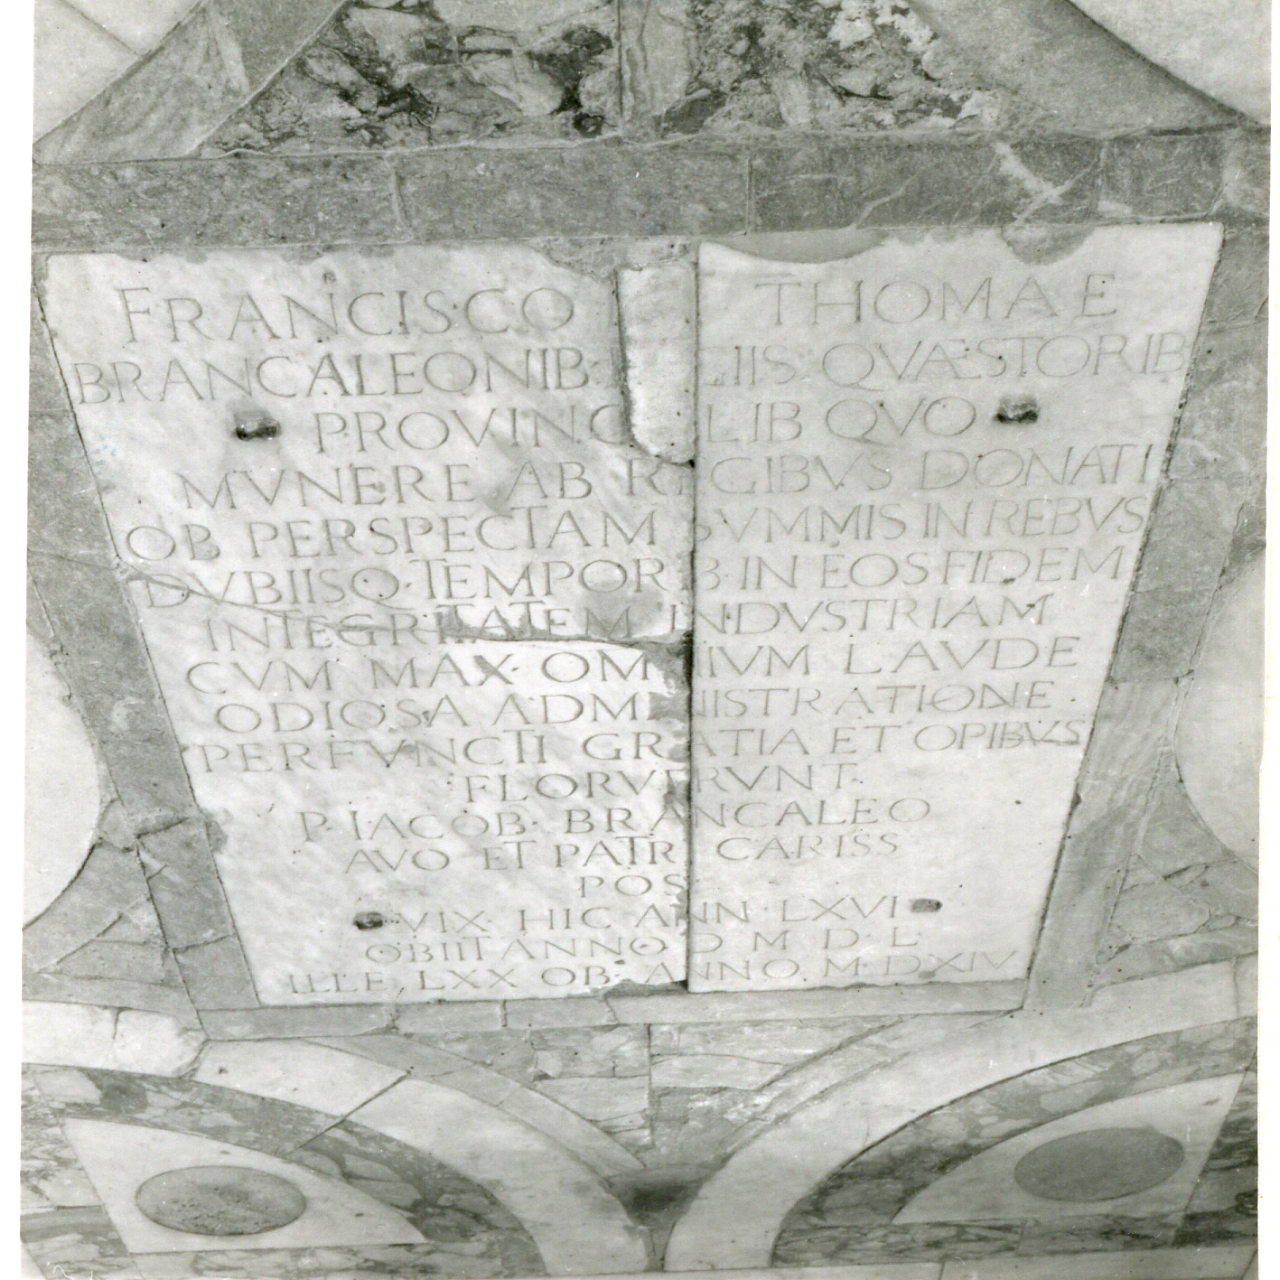 FRANCISCO THOMAE
BRANCALEONIB· GIIS QVÆSTORIB
PROVINC LIB QVO
MVNERE AB REGIBVS DONATI
OB PERSPECTAM SVMMIS IN REBVS
DVBIISQ· TEMPORIB· IN EOS FIDEM
INTEGRITATEM INDVSTRIAM
CVM MAX· OMNIVM LAVDE
ODIOSA ADMINISTRATIONE·
PERFVNCTI GRATIA ET OPIBVS
FLORVERVNT·
P· IACOB· BRANCALEO
AVO ET PATR CARISS
POS
VIX· HIC ANN· LXVI
OBIIT ANNO D M D L
ILLE LXX OB· ANNO· M· D·XIV